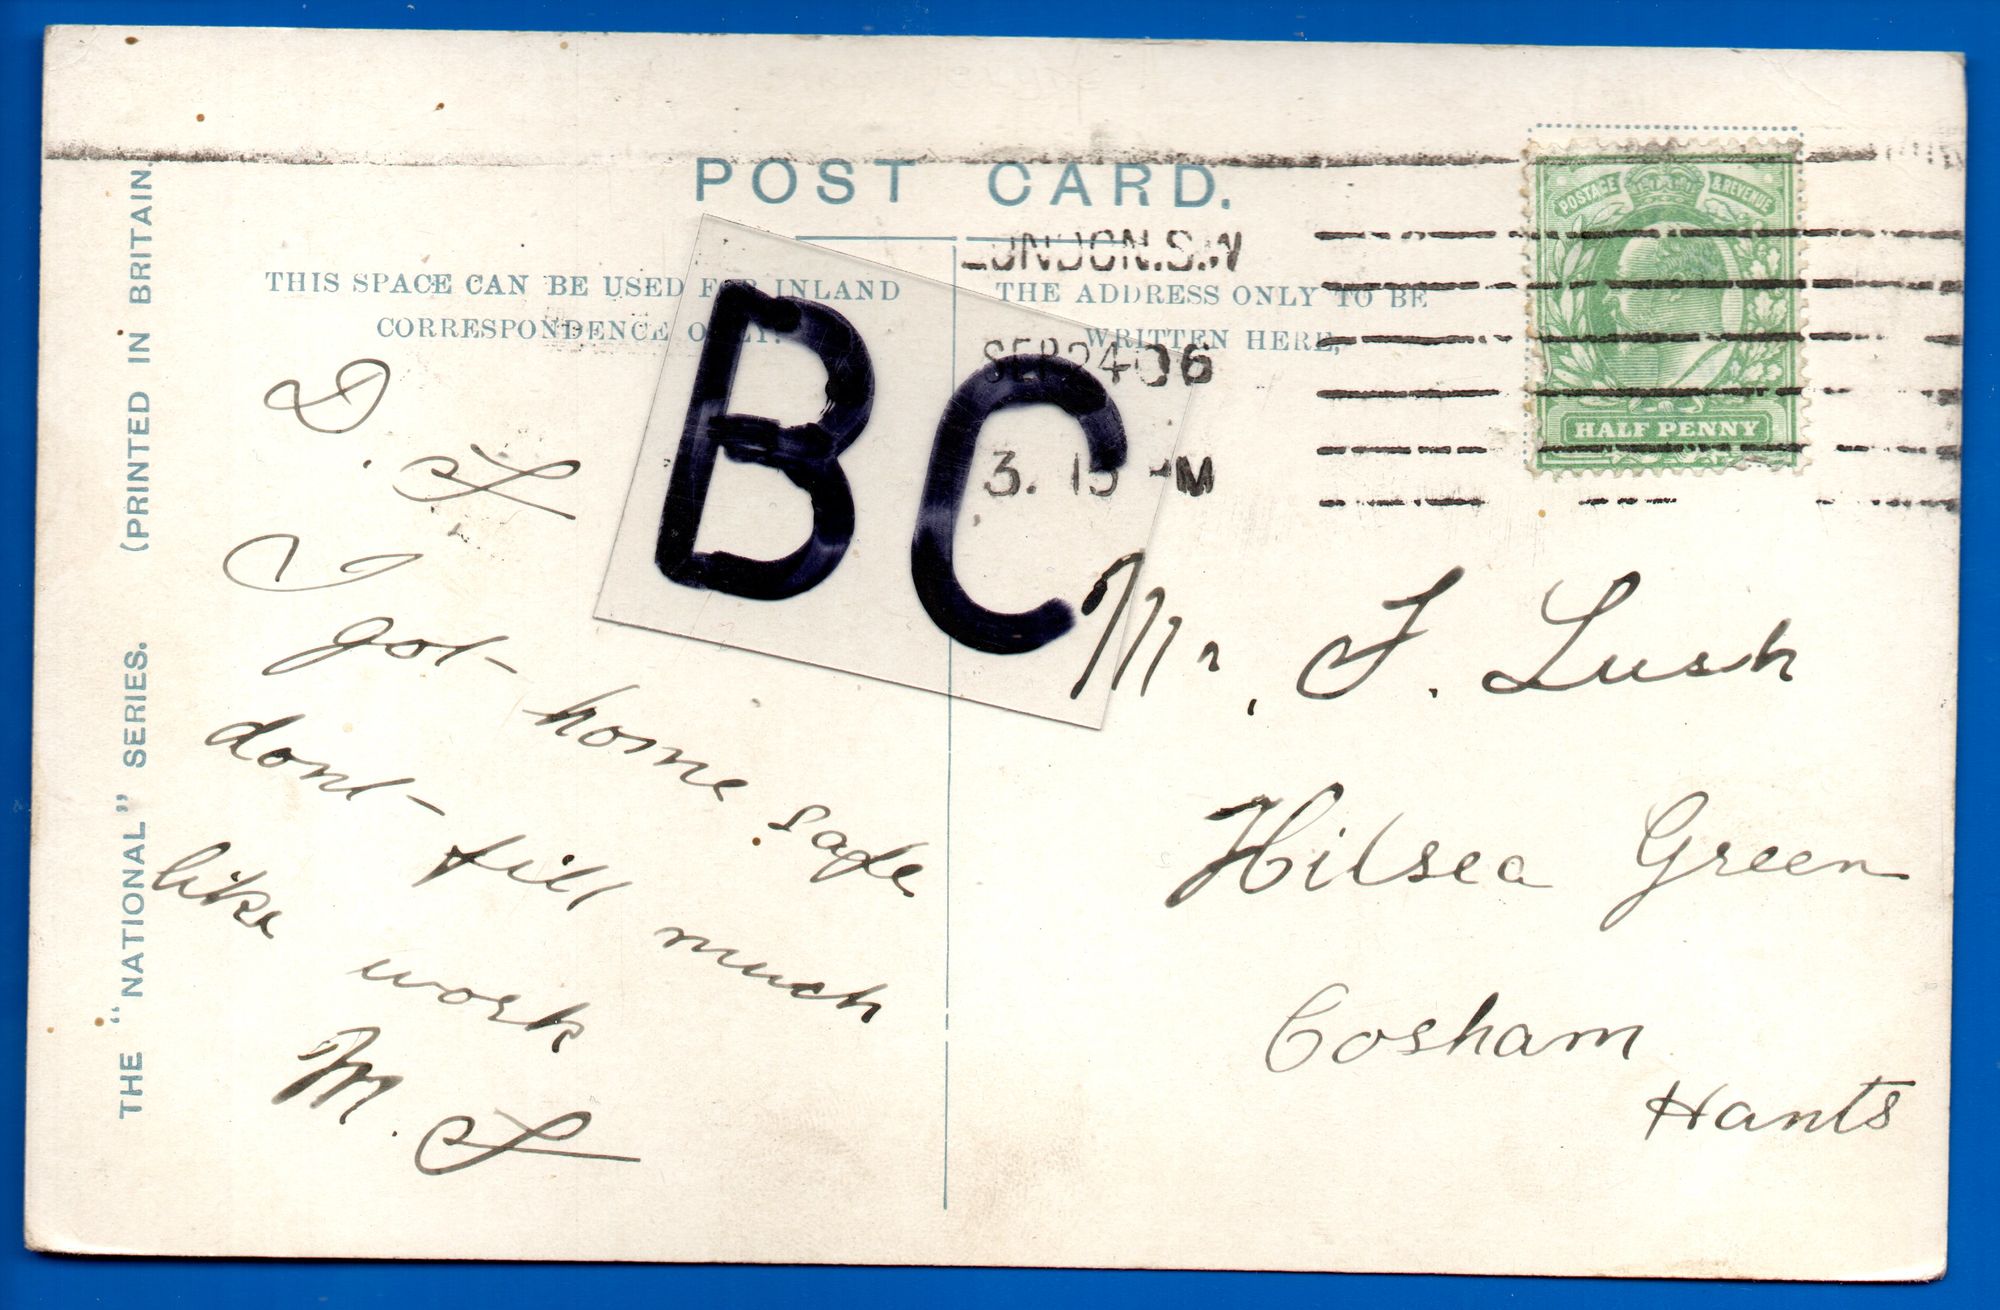 POST CARD.
THIS SPACE CAN BE USED FOR INLAND
CORRESPONDENCE ONLY.
THE ADDRESS ONLY TO BE
WRITTEN HERE,
LONDON.S.W
SEP 24 06
3. 15 PM
POSTAGE & REVENUE
HALF PENNY
BC
THE "NATIONAL" SERIES. (PRINTED IN BRITAIN.
D. L
I got home safe
dont fill much
like work
M. L
Mr, F. Lush
Hilsea Green
Cosham
Hants